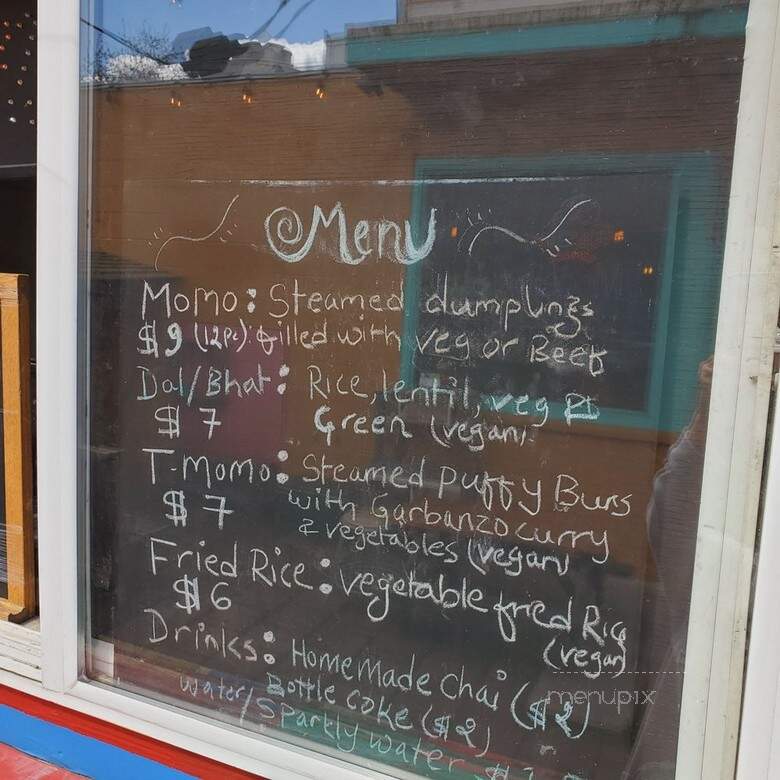 Menu
Momo: Steamed dumplings
$9 (12pc): filled with veg or Beef
Dal/Bhat: Rice, lentil, veg
$7 Green (vegan)
T-Momo: Steamed Puffy Buns
$7 with Garbanzo curry
& vegetables (vegan)
Fried Rice: vegetable fried Ric
$6 (vegan)
Drinks: HomeMade Chai ($2)
Bottle coke ($2)
Water/Sparkly Water $
menupix